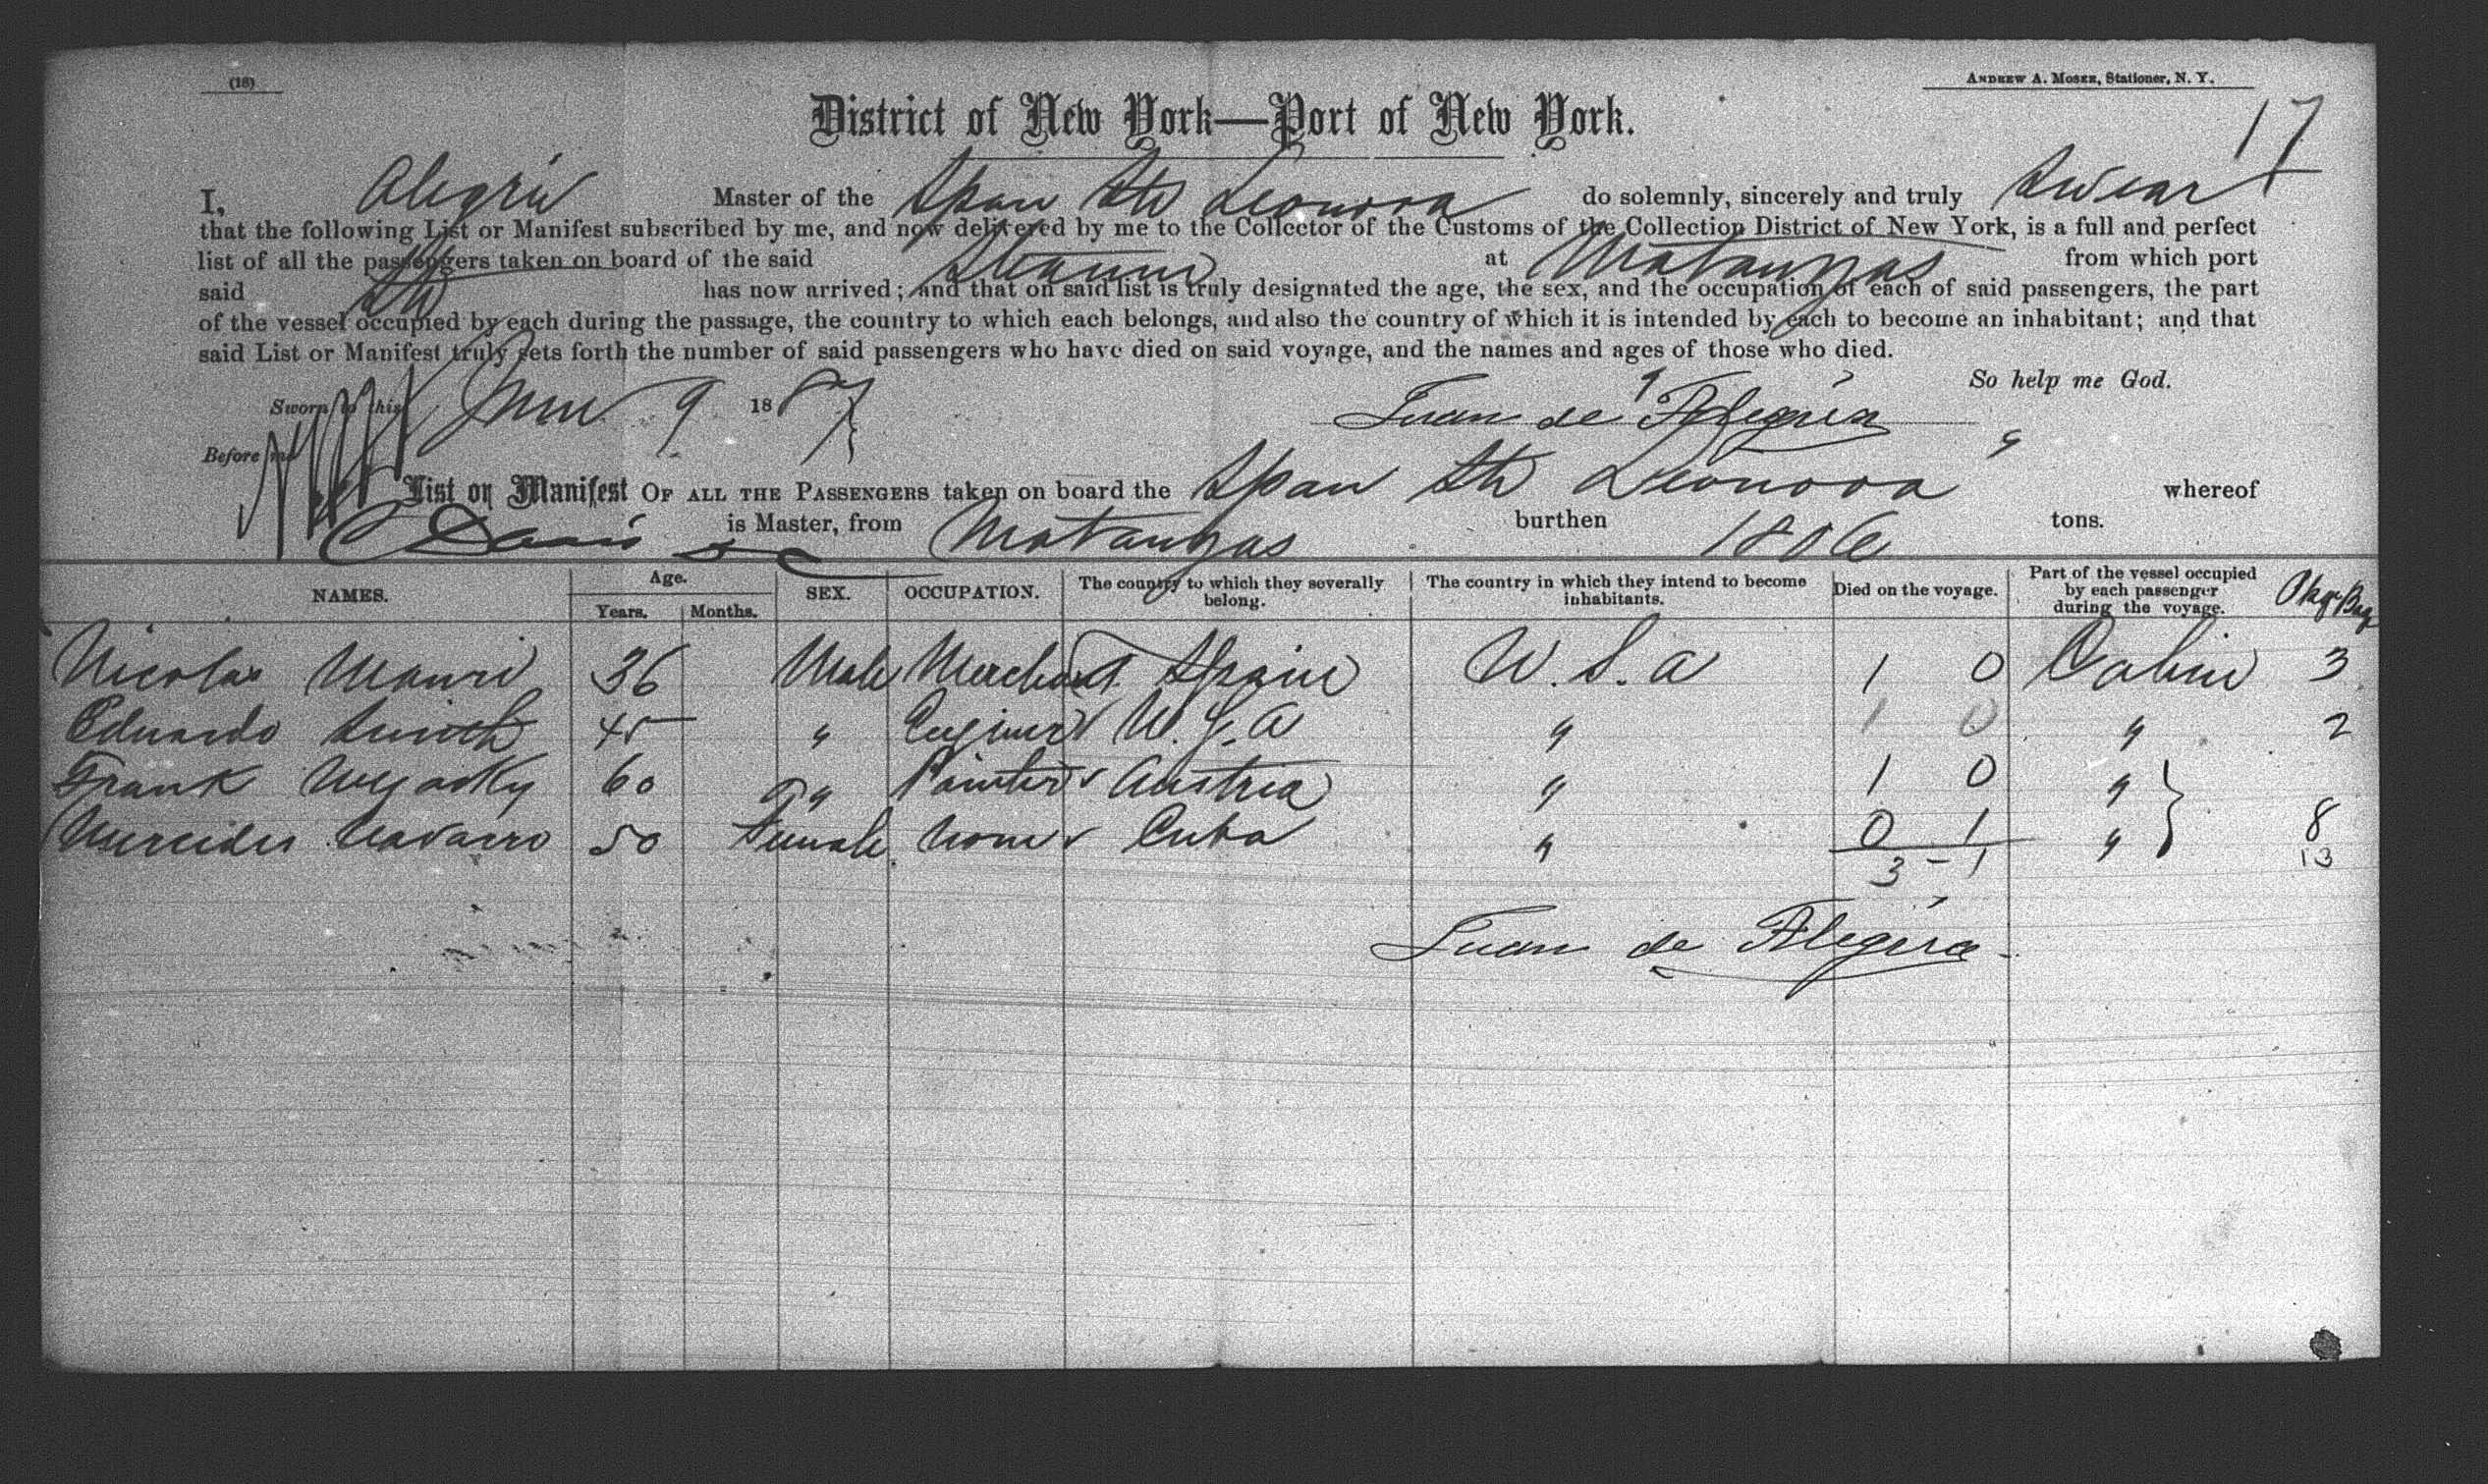 (18)
ANDREW A. MOSER, Stationer, N. Y.
District of New York—Port of New York.
17
I, Alegria Master of the Span Str Leonora do solemnly, sincerely and truly swear
that the following List or Manifest subscribed by me, and now delivered by me to the Collector of the Customs of the Collection District of New York, is a full and perfect
list of all the passengers taken on board of the said Steamer at Matanzas from which port
said Str has now arrived; and that on said list is truly designated the age, the sex, and the occupation of each of said passengers, the part
of the vessel occupied by each during the passage, the country to which each belongs, and also the country of which it is intended by each to become an inhabitant; and that
said List or Manifest truly sets forth the number of said passengers who have died on said voyage, and the names and ages of those who died.
So help me God.
Sworn to this 9 1887
Juan de Alegria
Before me
List or Manifest OF ALL THE PASSENGERS taken on board the Span Str Leonora whereof
is Master, from Matanzas burthen 1806 tons.
NAMES. Age. Years. Months. SEX. OCCUPATION. The country to which they severally belong. The country in which they intend to become inhabitants. Died on the voyage. Part of the vessel occupied by each passenger during the voyage. Pkgs Bag
Nicolas Mauri 36 Male Merchant Spain U.S.A 1 0 Cabin 3
Eduardo Smith 45 " Engineer U.S.A " 1 0 " 2
Frank 60 " Painter Austria " 1 0 "
Mercedes Navarro 50 Female None Cuba " 0 1 " 8
3 - 1 13
Juan de Alegria